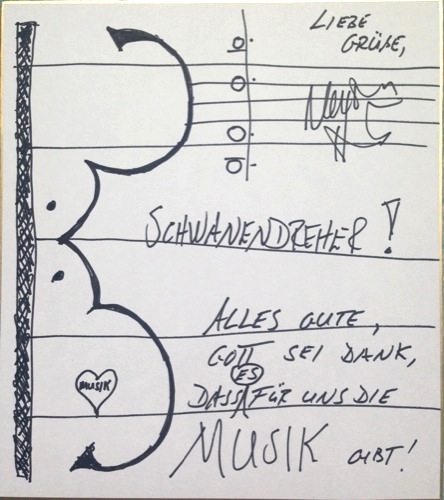 LIEBE
GRÜßE,
SCHWANENDREHER!
ALLES GUTE,
GOTT SEI DANK,
DASS ES FÜR UNS DIE
MUSIK
MUSIK GIBT!